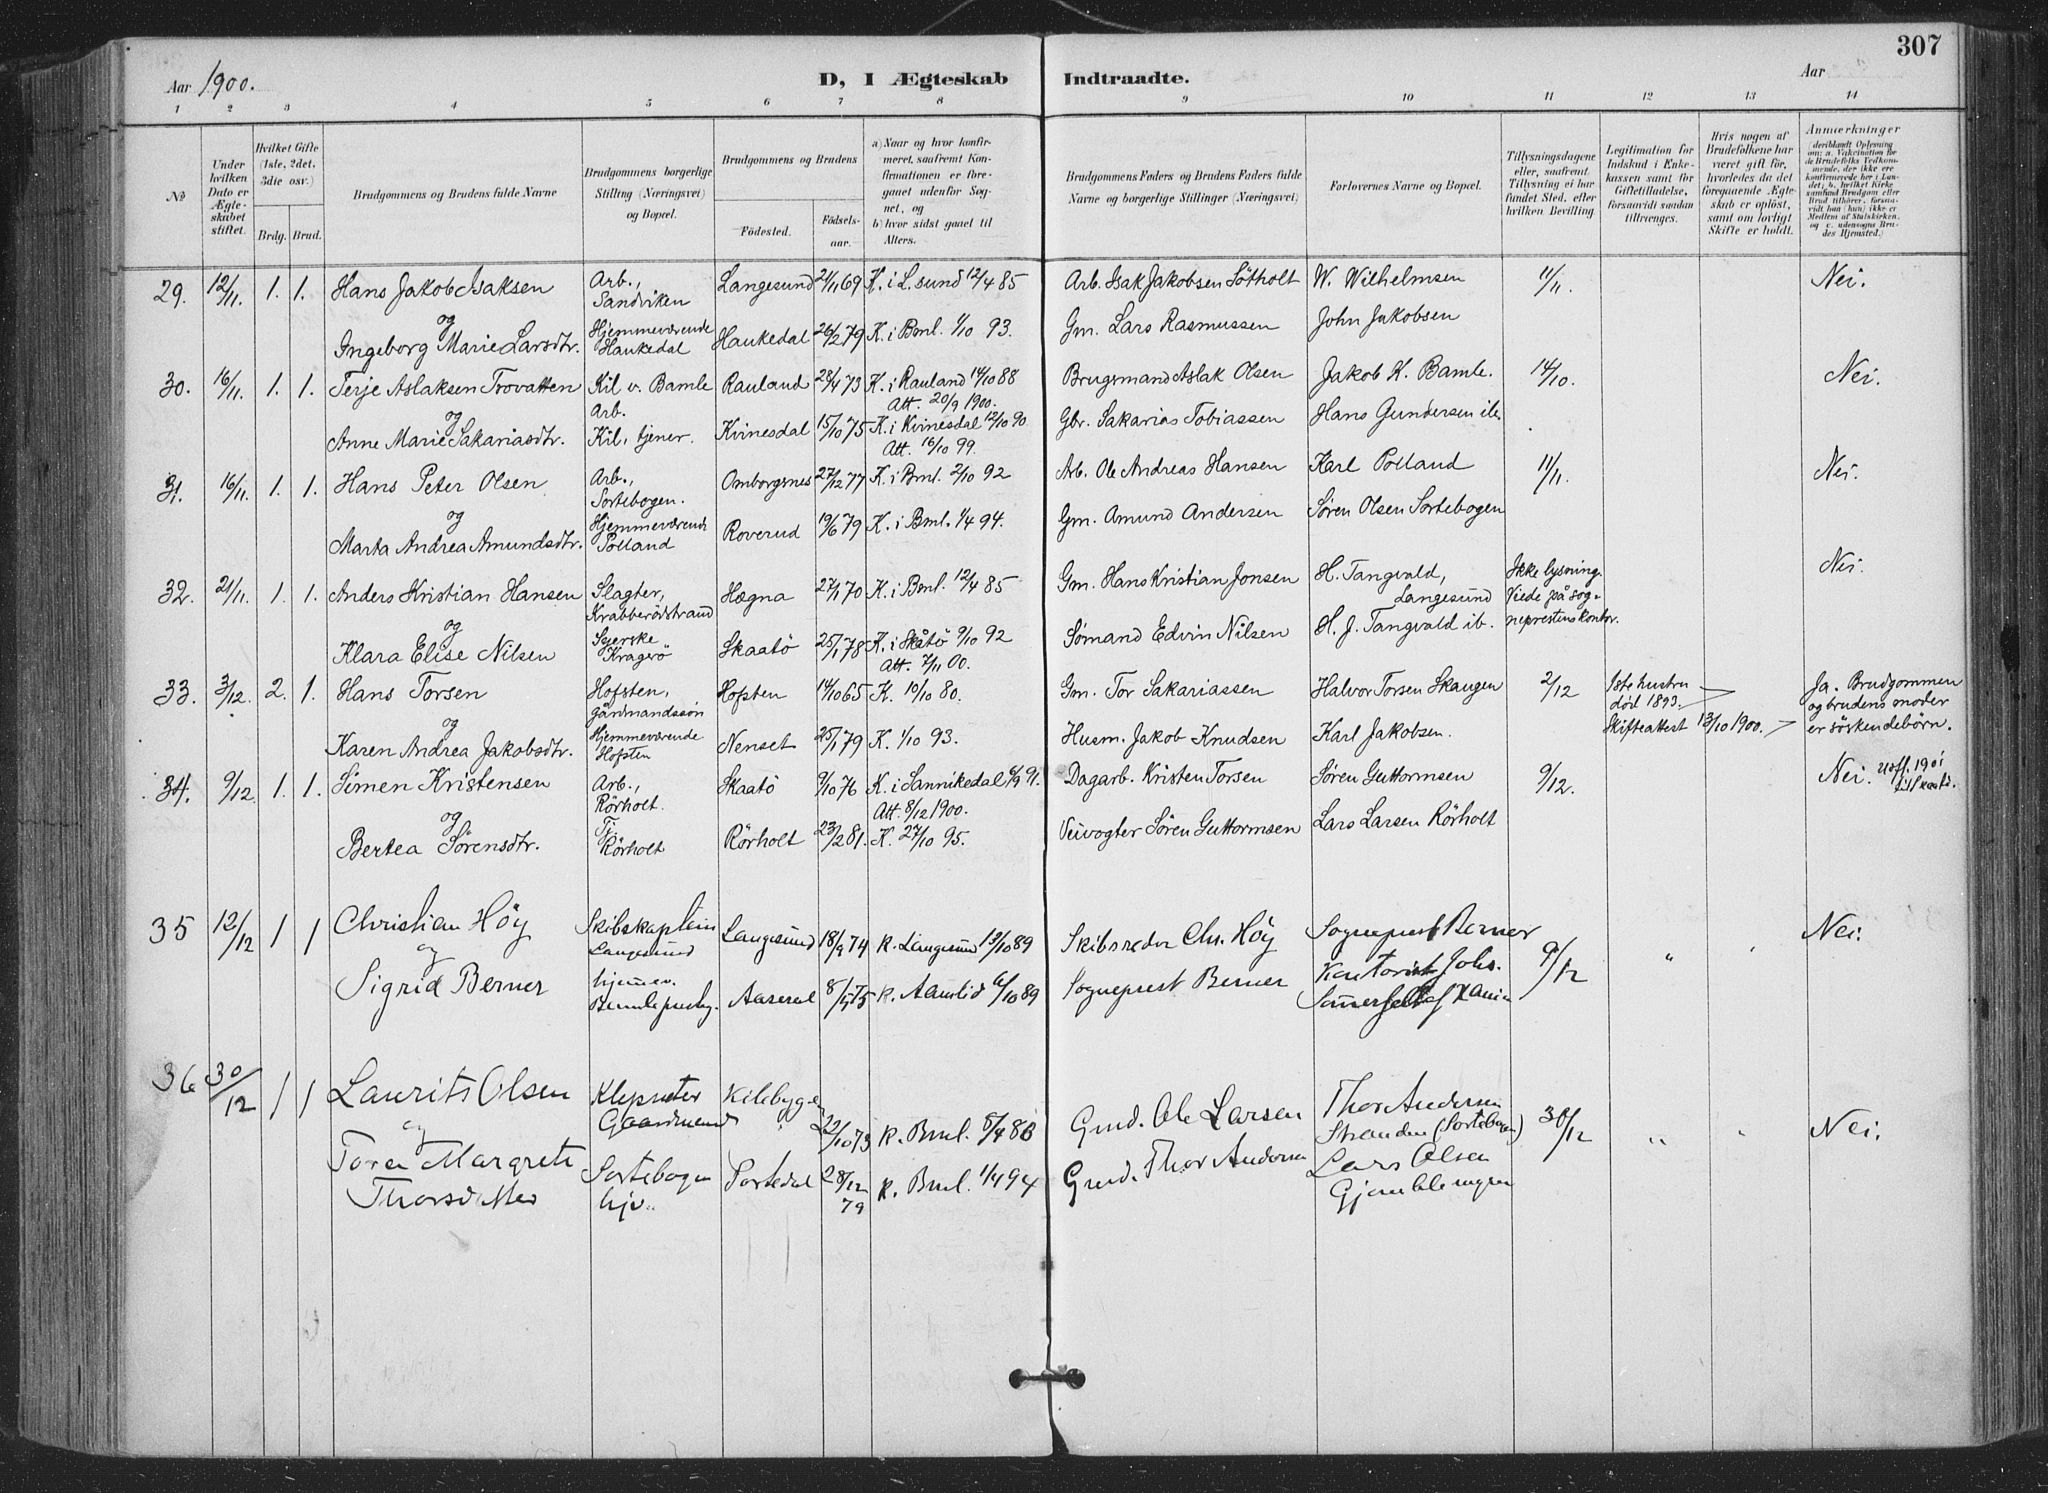 307
Aar 1900.
D, I Ægteskab Indtraadte.
Aar
1 2 3 4 5 6 7 8 9 10 11 12 13 14
№
Under hvilken Dato er Ægteskabet stiftet.
Hvilket Gifte (1ste, 2det, 3die osv.)
Brdg. Brud.
Brudgommens og Brudens fulde Navne
Brudgommens borgerlige Stilling (Næringsvei) og Bopæl.
Brudgommens og Brudens
Födested.
Födselsaar.
a) Naar og hvor konfirmeret, saafremt Konfirmationen er foregaaet udenfor Sognet, og
b) hvor sidst gaaet til Alters.
Brudgommens Faders og Brudens Faders fulde Navne og borgerlige Stillinger (Næringsvei)
Forlovernes Navne og Bopæl.
Tillysningsdagene eller, saafremt Tillysning ei har fundet Sted, efter hvilken Bevilling.
Legitimation for Indskud i Enkekassen samt for Giftetilladelse, forsaavidt saadan tiltrænges.
Hvis nogen af Brudefolkene har været gift før, hvorledes da det foregaaende Ægteskab er oplöst, samt om lovligt Skifte er holdt.
Anmærkninger (deriblandt Oplysning om: a. Vakcination for de Brudefolks Vedkommende, der ikke ere konfirmerede her i Landet; b. hvilket Kirkesamfund Brudgom eller Brud tilhörer, forsaavidt han (hun) ikke er Medlem af Statskirken, og v. udensogns Brudes Hjemsted.)
29. 12/11. 1. 1. Hans Jakob Isaksen Arb., Sandviken Langesund 21/11 69 K. i L.sund 12/4 85 Arb. Isak Jakobsen Søtholt W. Wilhelmsen 11/11. Nei.
og
Ingeborg Marie Larsdtr. Hjemmeværende Haukedal Haukedal 26/2 79 K. i Bml. 1/10 93. Gm. Lars Rasmussen John Jakobsen
30. 16/11. 1. 1. Terje Aslaksen Trovatten Kil v. Bamle Arb. Rauland 28/4 73 K. i Rauland 14/10 88 Att. 20/9 1900. Brugsmand Aslak Olsen Jakob K. Bamle. 14/10. Nei.
og
Anne Marie Sakariasdtr. Kil, tjener. Kvinesdal 15/10 75 K. i Kvinesdal 12/10 90 Att. 16/10 99. Gbr. Sakarias Tobiassen Hans Gundersen ib.
31. 16/11. 1. 1. Hans Peter Olsen Arb., Sortebogen. Omborgsnes 27/12 77 K. i Bml. 2/10 92 Arb. Ole Andreas Hansen Karl Polland 11/11. Nei.
og
Marta Andrea Amundsdtr. Hjemmeværende Polland Roverud 19/6 79 K. i Bml. 1/4 94. Gm. Amund Andersen Søren Olsen Sortebogen
32. 21/11. 1. 1. Anders Kristian Hansen Slagter, Krabberödstrand Hægna 27/1 70 K. i Bml. 12/4 85 Gm. Hans Kristian Jonsen H. Tangvald, Langesund Ikke lysning. Viede på sogneprestens kontor. Nei.
og
Klara Elise Nilsen Syerske Kragerö Skaatö 25/1 78 K. i Skåtö 9/10 92 Att. 7/11 00. Sømand Edvin Nilsen H. J. Tangvald ib.
33. 3/12. 2. 1. Hans Torsen Hofsten, gårdmandssön Hofsten 14/10 65 K. 10/10 80. Gm. Tor Sakariassen Halvor Torsen Skaugen 2/12 1ste hustru död 1893. Skifteattest 13/10 1900. Ja. Brudgommen og brudens moder er söskendebörn.
og
Karen Andrea Jakobsdtr. Hjemmeværende Hofsten Nenset 25/1 79 K. 1/10 93. Husm. Jakob Knudsen Karl Jakobsen.
34. 9/12. 1. 1. Simen Kristensen Arb., Rörholt. Skaatö 9/10 76 K. i Sannikedal 6/9 91. Att. 8/12 1900. Dagarb. Kristen Torsen Søren Guttormsen 9/12. Nei.
og
Bertea Sörensdtr. Rörholt Rörholt 23/2 81. K. 27/10 95. Veivogter Søren Guttormsen Lars Larsen Rörholt
35 12/12 1 1 Christian Höy Skibskaptein Langesund Langesund 18/9 74 k. Langesund 13/10 89 Skibsreder Chr. Höy Sogneprest Berner 9/12 " Nei.
og
Sigrid Berner hjemmev. Bamle prestg. Aaseral 8/5 75 k. Aamlid 6/10 89 Sogneprest Berner Kontorist Johs.
36 30/12 1 1 Laurits Olsen Gaardmand Kilebygen 22/10 73 k. Bml. 8/4 88 Gmd. Ole Larsen Thor Andersen Stranden (Sortebogen) 30/12 " " Nei.
og
Tora Margrete Thorsdatter Sortebogen hjv. Sortedal 28/12 79 k. Bml. 1/4 94 Gmd. Thor Andersen Lars Olsen